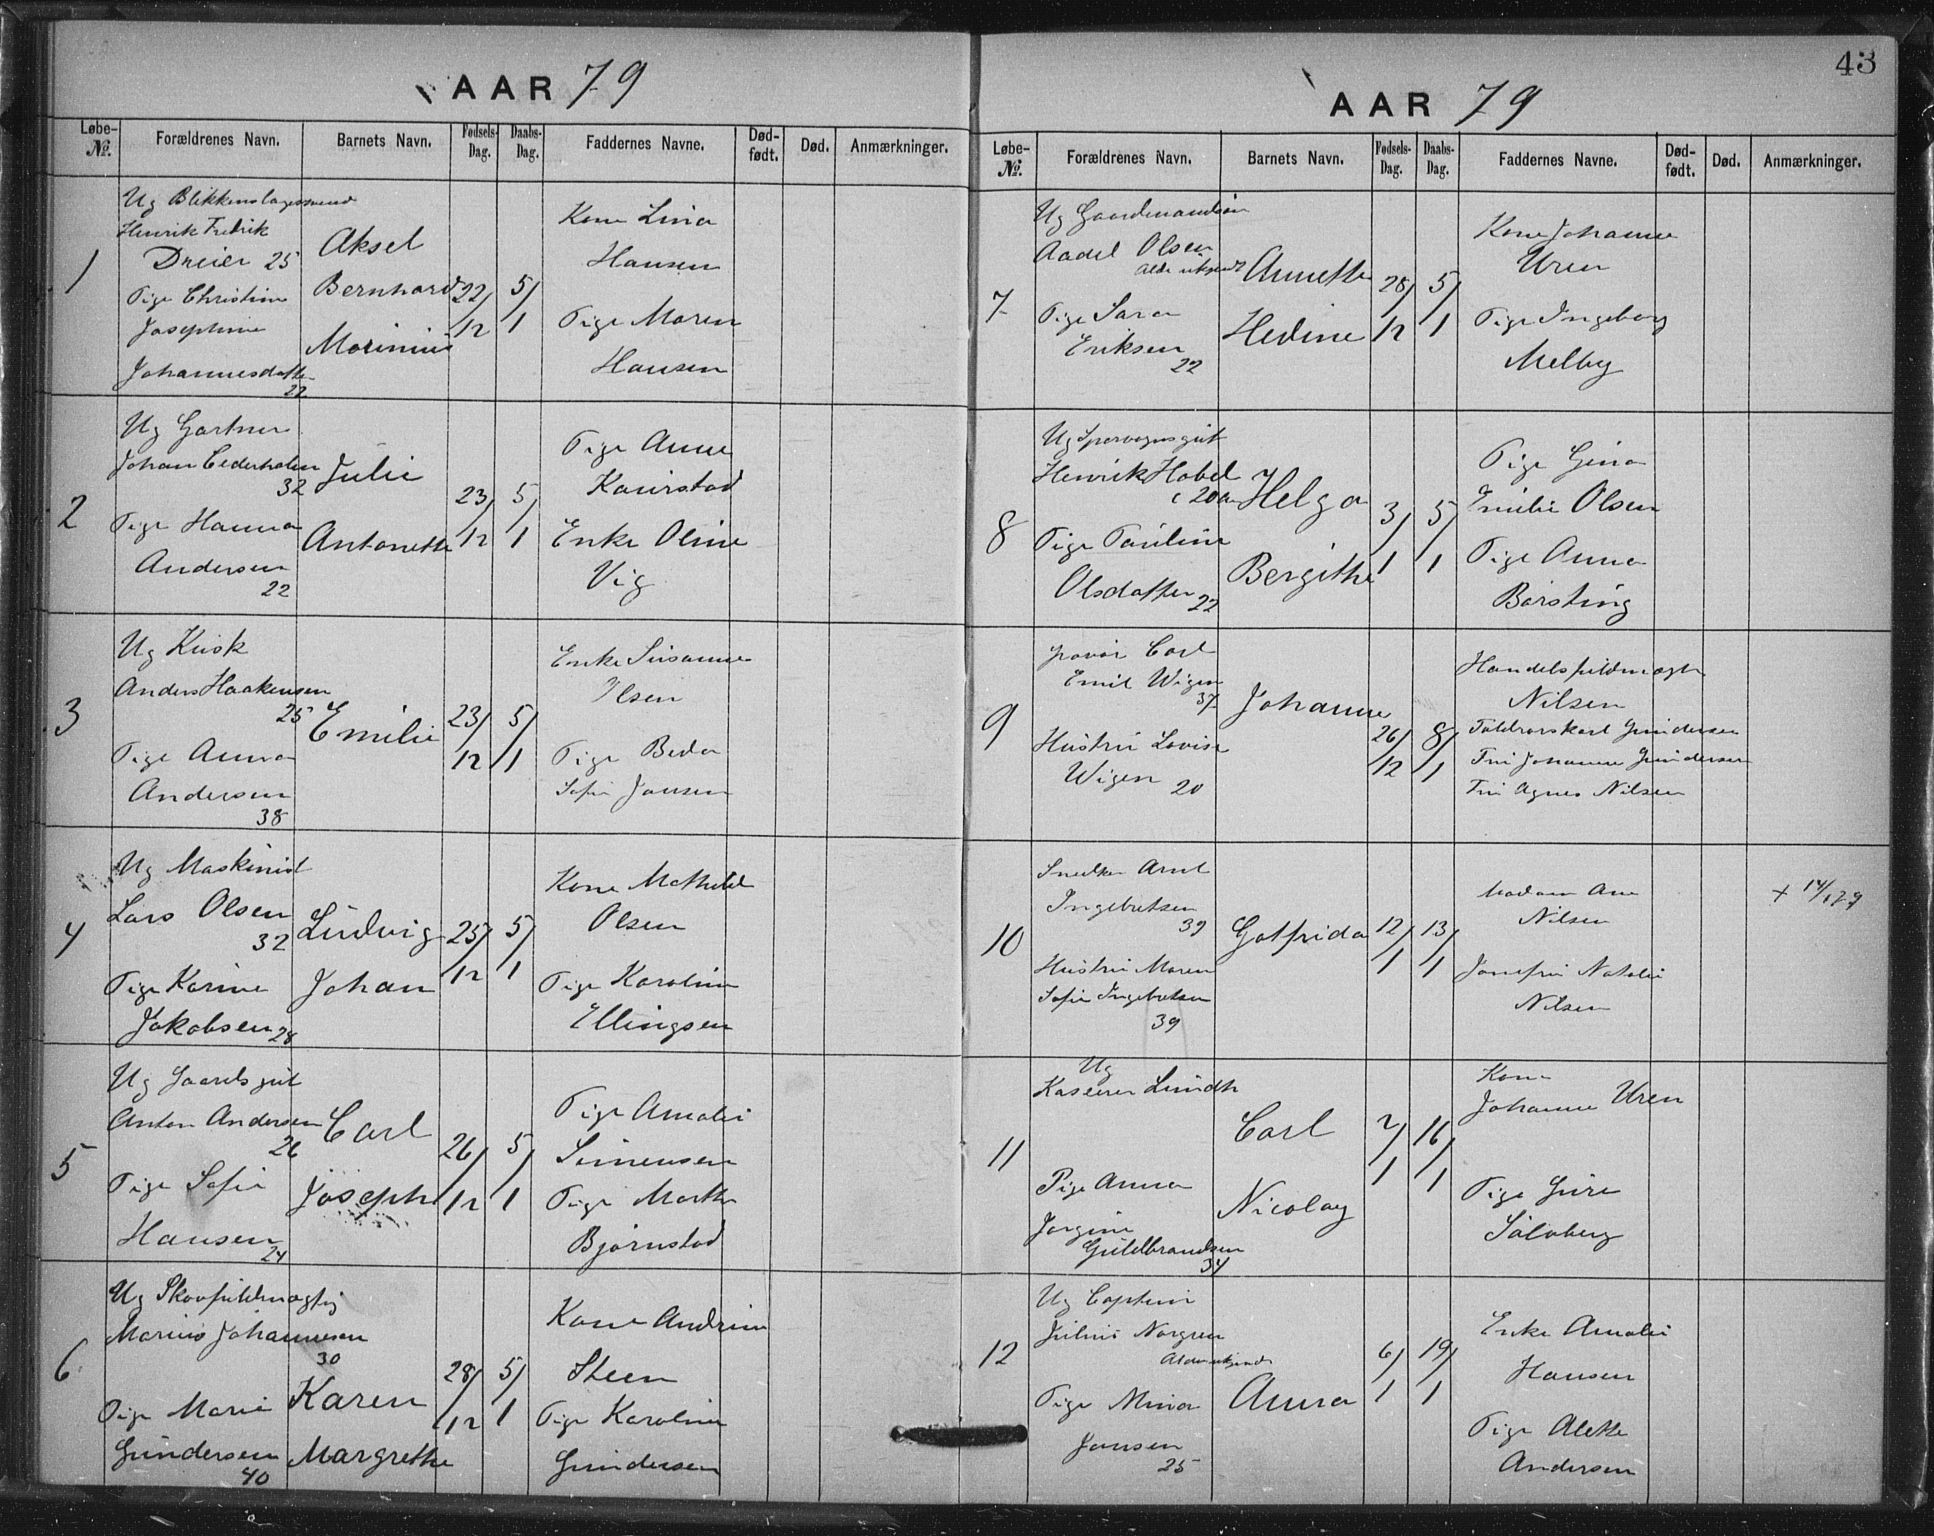 AAR 79
Løbe-№. Forældrenes Navn. Barnets Navn. Fødsels-Dag. Daabs-Dag. Faddernes Navne. Død-født. Død. Anmærkninger.
1
Ug Blikkenslagersvend
Henrik Fredrik
Dreier 25
Pige Christine
Josephine
Johannesdatter
22
Aksel
Bernhard
Marinius
22/12
5/1
Kone Lina
Hansen
Pige Maren
Hansen
2
Ug Gartner
Johan Cederholm
32
Pige Hanna
Andersen
22
Julie
Antonette
23/12
5/1
Pige Anne
Enke Oline
Vig
3
Ug Kusk
Anders Haakensen
25
Pige Anna
Andersen
38
Emilie
23/12
5/1
Enke Susanne
Olsen
Pige Beda
Sofie Jansen
4
Ug Maskinist
Lars Olsen
32
Pige Karine
Jakobsen 28
Ludvig
Johan
25/12
5/1
Kone Mathilde
Olsen
Pige Karoline
Ellingsen
5
Ug Gaardsgut
Anton Andersen
26
Pige Sofie
Hansen
24
Carl
Joseph
26/12
5/1
Pige Amalie
Simensen
Pige Marthe
Bjørnstad
6
Ug Skovfuldmægtig
Marius Johannesen
30
Pige Marie
Gundersen
40
Karen
Margrethe
28/12
5/1
Kone Andrine
Steen
Pige Karoline
Gundersen
43
AAR 79
Løbe-№. Forældrenes Navn. Barnets Navn. Fødsels-Dag. Daabs-Dag. Faddernes Navne. Død-født. Død. Anmærkninger.
7
Ug Gaardmandsøn
Aadel Olsen
Alder ukjendt
Pige Sara
Eriksen
22
Annette
Hedine
28/12
5/1
Kone Johanne
Uren
Pige Ingeborg
Melby
8
Ug Sporvognsgut
Henrik Habel
c 20 a
Pige Pauline
Olsdatter 22
Helga
Bergithe
3/1
5/1
Pige Gina
Emilie Olsen
Pige Anna
Børsting
9
Carl
Emil Wigen
37
Hustru Lovise
Wigen 20
Johanne
26/12
8/1
Handelsfuldmægtig
Nilsen
Toldrorskarl Gundersen
Fru Johanne Gundersen
Fru Agnes Nilsen
10
Snedker Arnt
Ingebretsen
39
Hustru Maren
Sofie Ingebretsen
39
Gotfrida
12/1
13/1
Madam Ane
Nilsen
Jomfru Natalie
Nilsen
+ 14/1 79
11
Ug
Kaserer Lundh
Pige Anna
Jørgine
Guldbrandsen
34
Carl
Nicolay
2/1
16/1
Kone
Johanne Uren
Pige Gure
Sølvberg
12
Ug Captein
Julius Norgren
Alder ukjendt
Pige Mina
Jansen
25
Anna
6/1
19/1
Enke Amalie
Hansen
Pige Alette
Andersen